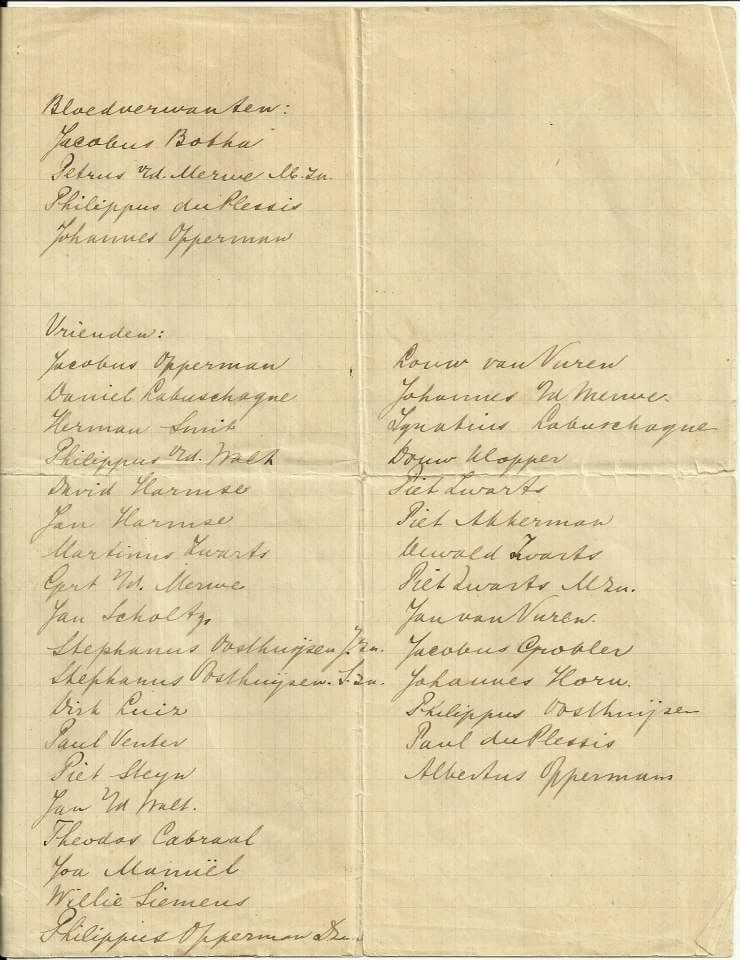 Bloedverwanten:
Jacobus Botha
Petrus v/d. Merwe M.zn.
Philippus du Plessis
Johannes Opperman
Vrienden:
Jacobus Opperman
Daniel Labuschagne
Herman Smit
Philippus v/d. Walt
David Harmse
Jan Harmse
Martinus Zwarts
Gert v/d. Merwe
Jan Scholtz
Stephanus Oosthuijsen J.zn.
Stephanus Oosthuijsen. S.zn.
Dirk
Paul Venter
Piet Steyn
Jan v/d Walt.
Theodos Cabraal
Joa Maniël
Willie Siemens
Philippus Opperman Dzn.
Louw van Vuren
Johannes v/d Merwe.
Ignatius Labuschagne
Douw Klopper
Piet Zwarts
Piet Akkerman
Oswald Zwarts
Piet Zwarts Mzn.
Jan van Vuren.
Jacobus Grobler
Johannes Horn.
Philippus Oosthuijsen
Paul du Plessis
Albertus Oppermans